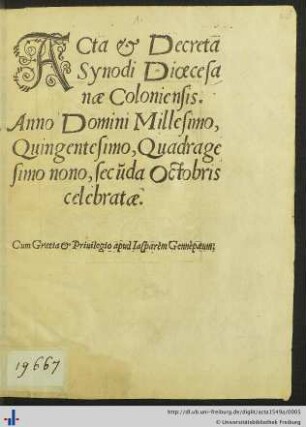 ACta & Decreta
Synodi Diœcesa
næ Coloniensis.
Anno Domini Millesimo,
Quingentesimo, Quadrage
simo nono, secũda Octobris
celebratæ.
Cum Gratia & Priuilegio apud Iasparem Gennepæum,
19.667
http://dl.ub.uni-freiburg.de/diglit/acta1549a/0001
© Universitätsbibliothek Freiburg